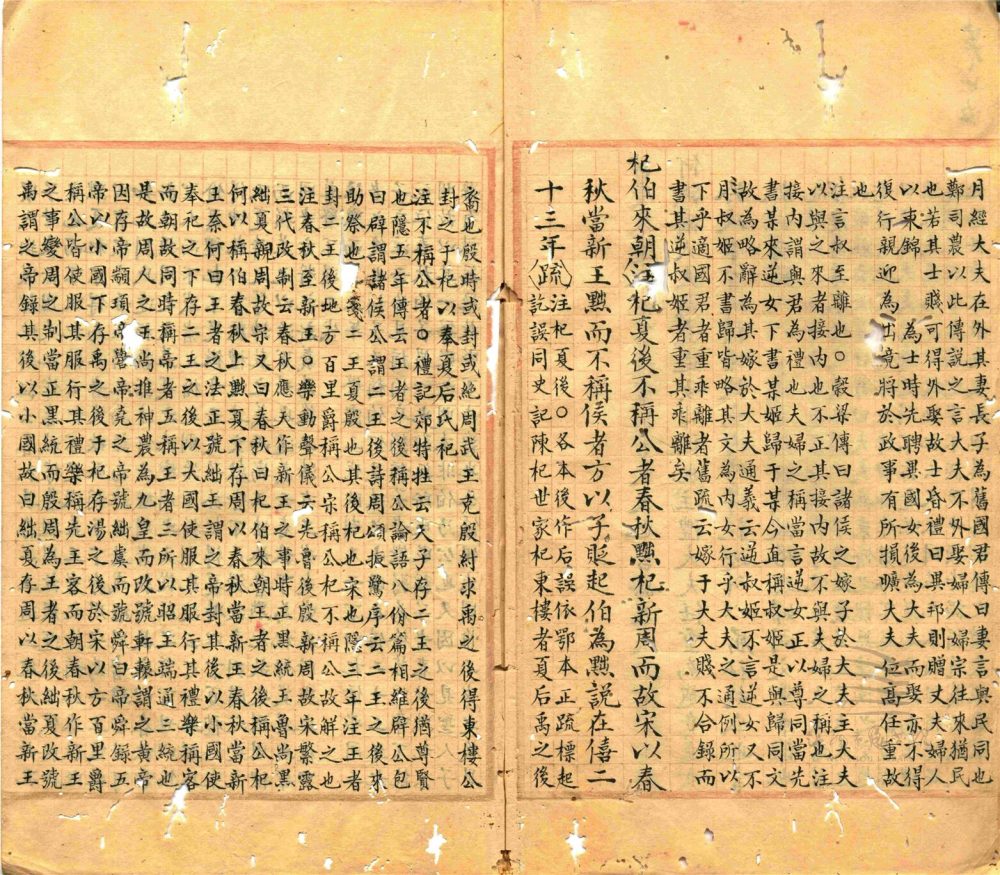 月經大夫在外其妻長子為舊國君傳曰妻言與民同也
鄭司農以此傳說之言大夫不外娶婦人婦宗往來猶民
也若其士賤可得外娶故士昏禮曰異邦則贈丈夫婦人
以束錦為士時先聘異國女後為大夫而娶亦不得
復行親迎為出竟將於政事有所損曠大夫位高任重故
也
注言叔至離也○穀梁傳曰諸侯之嫁子於大夫主大夫
以與之來者接內也不正其接內故不與夫婦之稱也注
接內謂與君為禮也夫婦之稱當言逆女正以尊同當先
書某來逆女下書某姬歸于某今直稱叔姬是與歸同文
故為略辭為其嫁於大夫通義云逆叔姬不言逆女又不
月叔姬不書歸皆略其文為內女行乎大夫之通例所以
下乎適國君者重乖離者舊疏云嫁于大夫賤不合錄而
書其逆叔姬者重其乖離矣
杞伯來朝注杞夏後不稱公者春秋黜杞新周而故宋以春
秋當新王黜而不稱侯者方以子貶起伯為黜說在僖二
十三年疏注杞夏後○各本後作后誤依鄂本正疏標起
訖誤同史記陳杞世家杞東樓者夏后禹之後
裔也殷時或封或絕周武王克殷紂求禹之後得東樓公
封之于杞以奉夏后氏祀
注不稱公者○禮記郊特牲云天子存二王之後猶尊賢
也隱五年傳云王者之後稱公論語八佾篇相維辟公包
曰辟謂諸侯公謂二王後詩周頌振鷺序云二王之後來
助祭也箋二王夏殷也其後杞也宋也隱三年注云王者
封二王後地方百里爵稱公宋稱公杞不稱公故解之也
注春秋至新王○樂動聲儀云先魯後殷新周故宋繁露
三代改制云春秋應天作新王之事時正黑統王魯尚黑
絀夏親周故宋又曰春秋曰杞伯來朝王者之後稱公杞
何以稱伯春秋上黜夏下存周以春秋當新王春秋當新
王奈何曰王者之法正號絀王謂之帝封其後以小國使
奉祀之下存二王之後以大國使服其服行其禮樂稱客
而朝故同時稱帝者五稱王者三所以昭王端通三統也
是故周人之王尚推神農為九皇而改號軒轅謂之黃帝
因存帝顓頊帝嚳帝堯之帝號絀虞而號舜曰帝舜錄五
帝以小國下存禹之後于杞存湯之後於宋以方百里爵
稱公皆使服其服行其禮樂稱先王客而朝春秋作新王
之事變周之制當正黑統而殷周為王者之後絀夏改號
禹謂之帝錄其後以小國故曰絀夏存周以春秋當新王